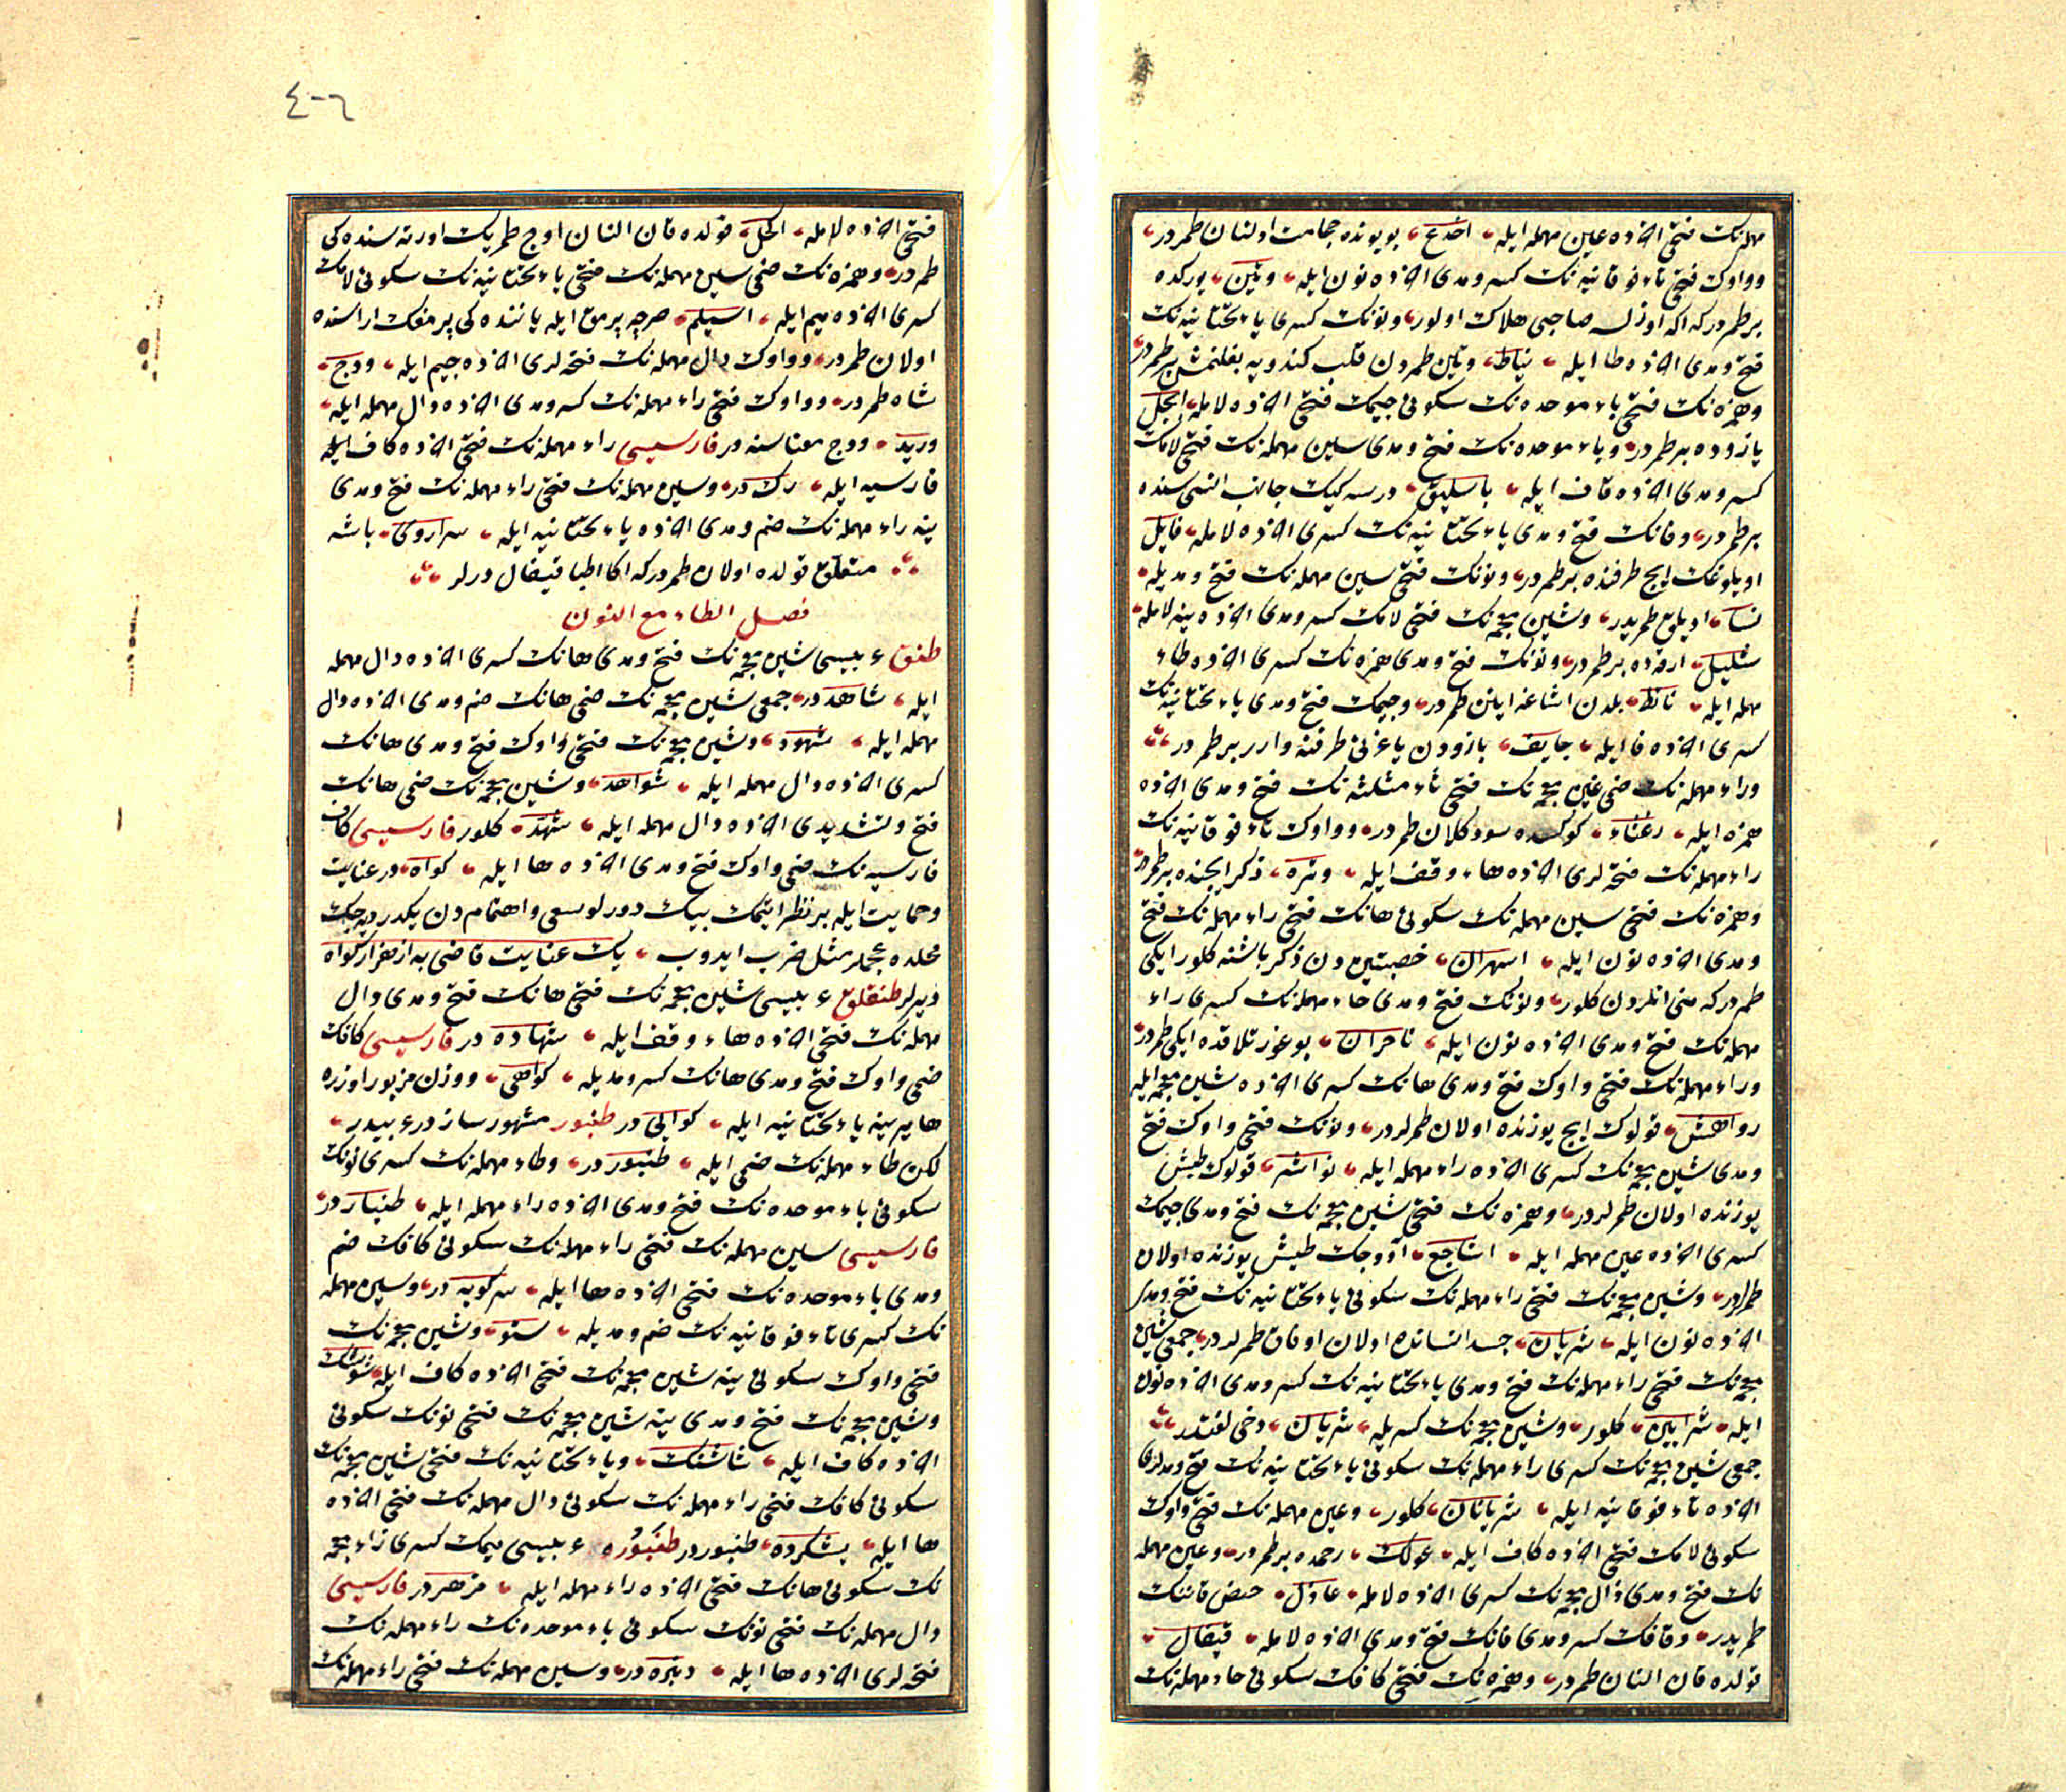 مهملهنك فتحی اخرده عین مهمله ایله اخدع بویونده حجامت اولنان طمردر
وواوك فتحی تاء فوقانیهنك كسر ومدی اخرده نون ایله وتین یوركده
بر طمردر كه اكه اوزلسه صاحبی هلاك اولور ونونك كسری یاء تحتانیهنك
فتح ومدی اخرده طا ایله نیاط وتین طمردن قلب كندویه بغلنمش بر طمردر
وهمزهنك فتحی باء موحدهنك سكونی جیمك فتحی اخرده لامله ابجل
بازوده بر طمردر وباء موحدهنك فتح ومدی سین مهملهنك فتحی لامك
كسر ومدی اخرده قاف ایله باسلیق درسهكیك جانب انسی سنده
بر طمردر وفانك فتح ومدی یاء تحتانیهنك كسری اخرده لامله فایل
اویلوغك ایچ طرفنده بر طمردر ونونك فتحی سین مهملهنك فتح ومدیله
نسا اویلوق طمریدر وشین معجمهنك فتحی لامك كسر ومدی اخرده ینه لامله
شلیل ارقهده بر طمردر ونونك فتح ومدی همزهنك كسری اخرده طاء
مهمله ایله نائط بلدن اشاغه اینن طمردر وجیمك فتح ومدی یاء تحتانیهنك
كسری اخرده فا ایله جایف بازودن یاغرنی طرفنه وارر بر طمردر
وراء مهملهنك ضمی غین معجمهنك فتحی ثاء مثلثهنك فتح ومدی اخرده
همزه ایله رغثاء كوكسده سود كلان طمردر وواوك تاء فوقانیهنك
راء مهملهنك فتحهلری اخرده هاء وقف ایله وتره ذكر ایچنده بر طمردر
وهمزهنك فتحی سین مهملهنك سكونی هانك فتحی راء مهملهنك فتح
ومدی اخرده نون ایله اسهران خصیتین دن ذكر باشنه كلور ایكی
طمردر كه منی انلردن كلور ونونك فتح ومدی حاء مهملهنك كسری راء
مهملهنك فتح ومدی اخرده نون ایله ناحران بوغزتلاقده ایكی طمردر
وراء مهملهنك فتحی واوك فتح ومدی هانك كسری اخرده شین معجمه ایله
رواهش قولوك ایچ یوزنده اولان طمرلردر ونونك فتحی واوك فتح
ومدی شین معجمهنك كسری اخرده راء مهمله ایله نواشر قولوك طیش
یوزنده اولان طمرلردر وهمزهنك فتحی شین معجمهنك فتح ومدی جیمك
كسری اخرده عین مهمله ایله اشاجع آووجك طیش یوزنده اولان
طمرلردر وشین معجمهنك فتحی راء مهملهنك سكونی یاء تحتانیهنك فتح ومدی
اخرده نون ایله شریان جسد انسانده اولان اوفاق طمرلردر جمعی شین
معجمهنك فتحی راء مهملهنك فتح ومدی یاء تحتانیهنك كسر ومدی اخرده نون
ایله شرایین كلور وشین معجمهنك كسریله شریان دخی لغتدر
جمعی شین معجمهنك كسری راء مهملهنك سكونی یاء تحتانیهنك فتح ومدلری
اخرده تاء فوقانیه ایله شریانات كلور وعین مهملهنك فتحی واوك
سكونی لامك فتحی اخرده كاف ایله عولك رحمده بر طمردر وعین مهمله
نك فتح ومدی ذال معجمهنك كسری اخرده لامله عاذل حیض قاننك
طمریدر وقافك كسر ومدی فانك فتح ومدی اخرده لامله قیفال
قولده قان النان طمردر وهمزهنك فتحی كافك سكونی حاء مهملهنك
٤٠٦
فتحی اخرده لامله اكحل قولده قان النان اوچ طمریك اورتهسندهكی
طمردر وهمزهنك ضمی سین مهملهنك فتحی یاء تحتانیهنك سكونی لامك
كسری اخرده میم ایله اسیلم صرچه پرمق ایله یانندهكی پرمغك اراسنده
اولان طمردر وواوك دال مهملهنك فتحهلری اخرده جیم ایله ودج
شاه طمردر وواوك فتحی راء مهملهنك كسر ومدی اخرده دال مهمله ایله
ورید ودج معناسنهدر فارسیسی راء مهملهنك فتحی اخرده كاف
فارسیه ایله رك در وسین مهملهنك فتحی راء مهملهنك فتح ومدی
ینه راء مهملهنك ضم ومدی اخرده یاء تحتانیه ایله سراروی باشه
متعلق قولده اولان طمردر كه اكا اطبا قیفال دیرلر
فصل الطاء مع النون
طنق عربیسی شین معجمهنك فتح ومدی هانك كسری اخرده دال مهمله
ایله شاهد در جمعی شین معجمهنك ضمی هانك ضم ومدی اخرده دال
مهمله ایله شهود وشین معجمهنك فتحی واوك فتح ومدی هانك
كسری اخرده دال مهمله ایله شواهد وشین معجمهنك ضمی هانك
فتح وتشدیدی اخرده دال مهمله ایله شهد كلور فارسیسی كاف
فارسیهنك ضمی واوك فتح ومدی اخرده ها ایله كواه در عنایت
وحمایت ایله بر نظر ایتمك بیك دورلو سعی واهتمام دن یكدر دیهجك
محلده عجملر مثل ضرب ایدوب یك عنایت قاضی به از هزار كواه
دیرلر طنقلق عربیسی شین معجمهنك فتحی هانك فتح ومدی دال
مهملهنك فتحی اخرده هاء وقف ایله شهاده در فارسیسی كافك
ضمی واوك فتح ومدی هانك كسر ومدیله كواهی ووزن مزبور اوزره
ها یرینه یاء تحتانیه ایله كوایی در طنبور مشهور سازدر عربیدر
لكن طاء مهملهنك ضمی ایله طنبور در وطاء مهملهنك كسری نونك
سكونی باء موحدهنك فتح ومدی اخرده راء مهمله ایله طنبار در
فارسیسی سین مهملهنك فتحی راء مهملهنك سكونی كافك ضم
ومدی باء موحدهنك فتحی اخرده ها ایله سركوبه در وسین مهمله
نك كسری تاء فوقانیهنك ضم ومدیله ستو وشین معجمهنك
فتحی واوك سكونی ینه شین معجمهنك فتحی اخرده كاف ایله شوشك
وشین معجمهنك فتح ومدی ینه شین معجمهنك فتحی نونك سكونی
اخرده كاف ایله شاشنك ویاء تحتانیهنك فتحی شین معجمهنك
سكونی كافك فتحی راء مهملهنك سكونی دال مهملهنك فتحی اخرده
ها ایله یشكرده طنبور در طنبوره عربیسی میمك كسری زاء معجمه
نك سكونی هانك فتحی اخرده راء مهمله ایله مزهر در فارسیسی
دال مهملهنك فتحی نونك سكونی باء موحدهنك راء مهملهنك
فتحهلری اخرده ها ایله دنبره در وسین مهملهنك فتحی راء مهملهنك